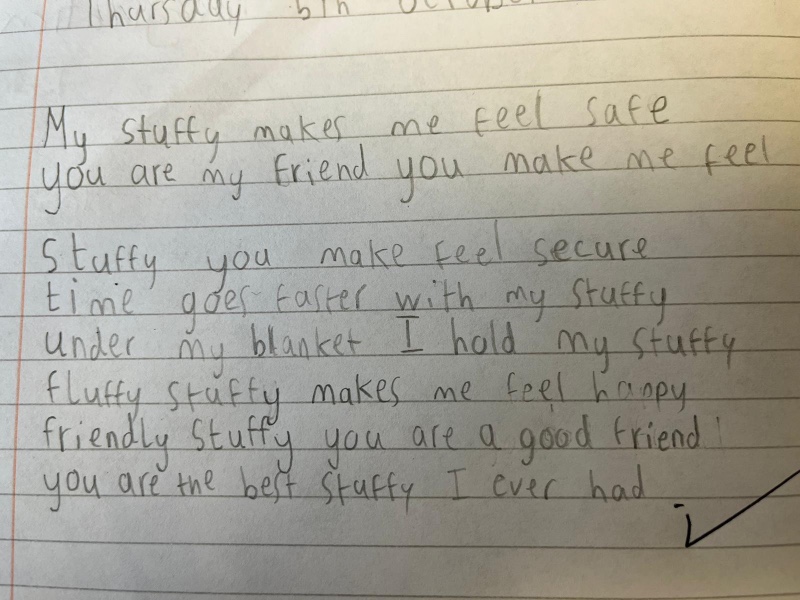 Thursday 5th October
My stuffy makes me feel safe
you are my friend you make me feel
Stuffy you make feel secure
time goes faster with my stuffy
under my blanket I hold my stuffy
fluffy stuffy makes me feel happy
friendly stuffy you are a good friend
you are the best stuffy I ever had